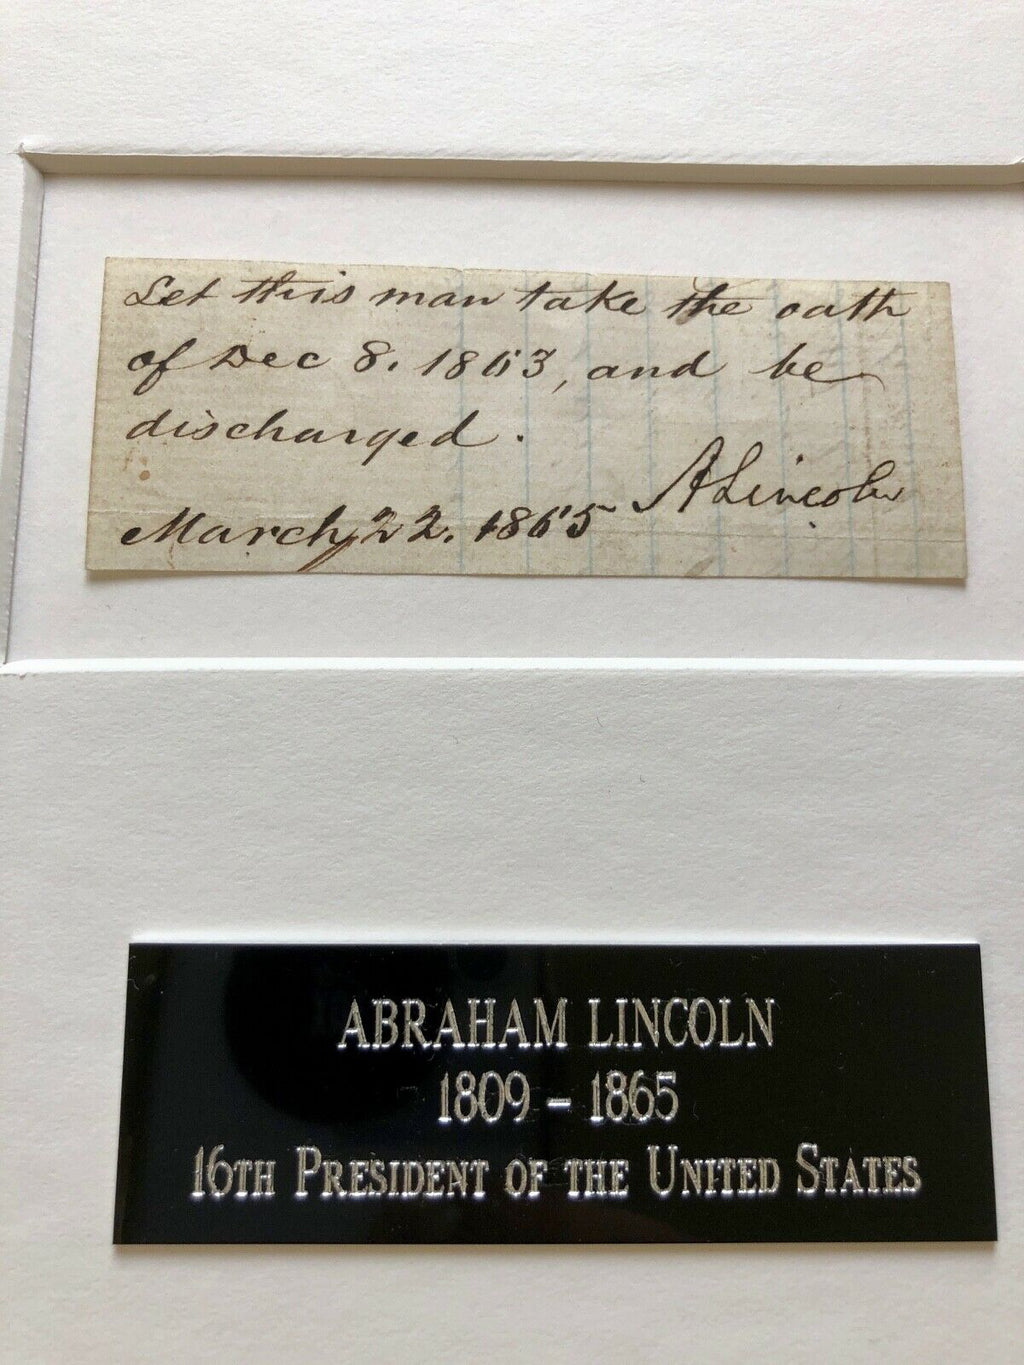 Let this man take the oath
of Dec 8. 1863, and be
discharged.
A Lincoln
March 22. 1865
ABRAHAM LINCOLN
1809 – 1865
16TH PRESIDENT OF THE UNITED STATES